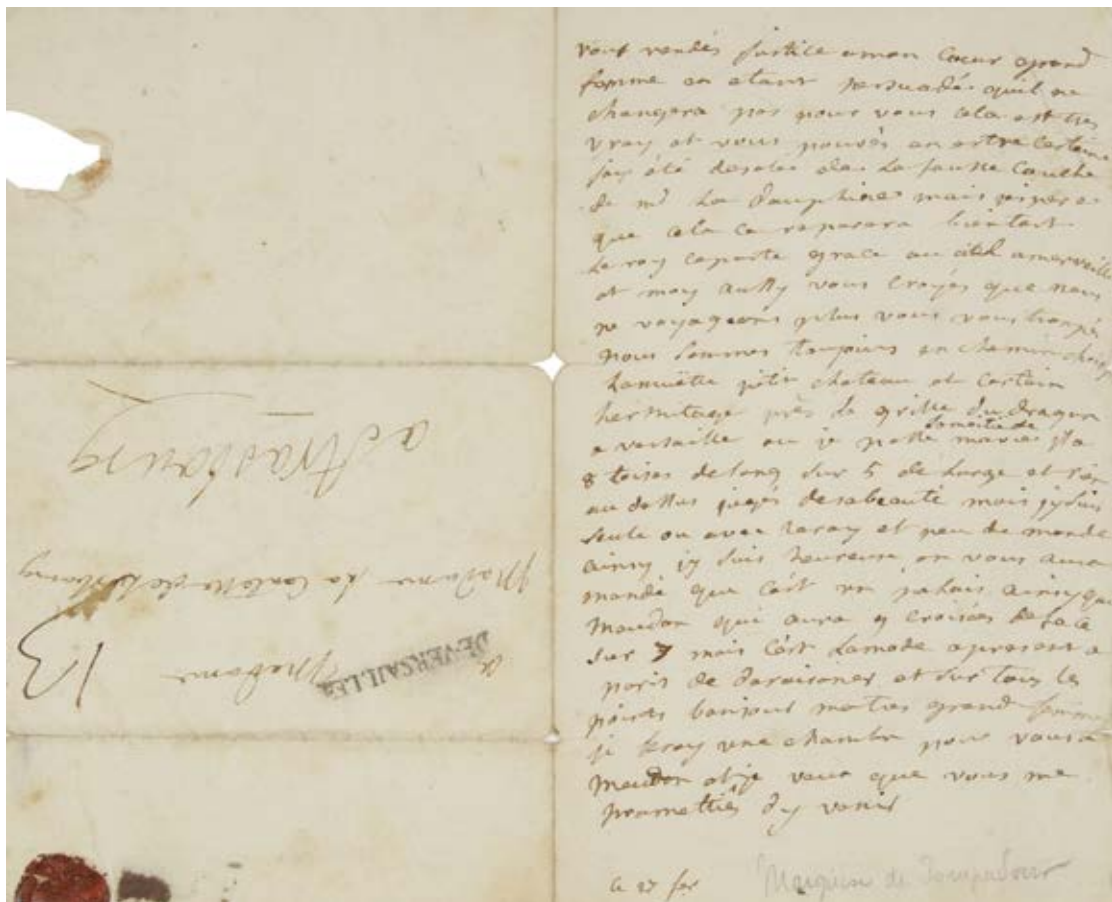 vous rendés justice a mon cœur grand
femme en etant persuadée quil ne
changera pas pour vous cela est tres
vray et vous pouvés en estre certaine
jay été desolée de la fausse couche
de md La Dauphine mais jespere
que cela ce reparera bientost
Le roy ce porte grace au ciel a merveille
et moy aussy vous croyés que nous
ne voyageons plus vous vous trompés
nous sommes toujours en chemin choisy
Lamuëtte petit chateau et certain
hermitage près la grille du dragon
a versaille ou je passe la moitié de ma vie jl a
8 toises de long sur 5 de large et rien
au dessus jugés de sa beauté mais jy suis
seule ou avec le roy et peu de monde
ainsy jy suis heureuse on vous aura
mandé que c'est un palais ainsy que
Meudon qui aura 9 croisées de face
sur 7 mais c'est la mode apresent a
paris de deraisoner et sur tous les
points bonjour ma tres grand femme
je feray une chambre pour vous a
Meudon et je veux que vous me
promettiés dy venir
ce 27 fer
Marquise de Pompadour
a Madame
DE VERSAILLES
Madame La Contesse de
a strasbourg
13